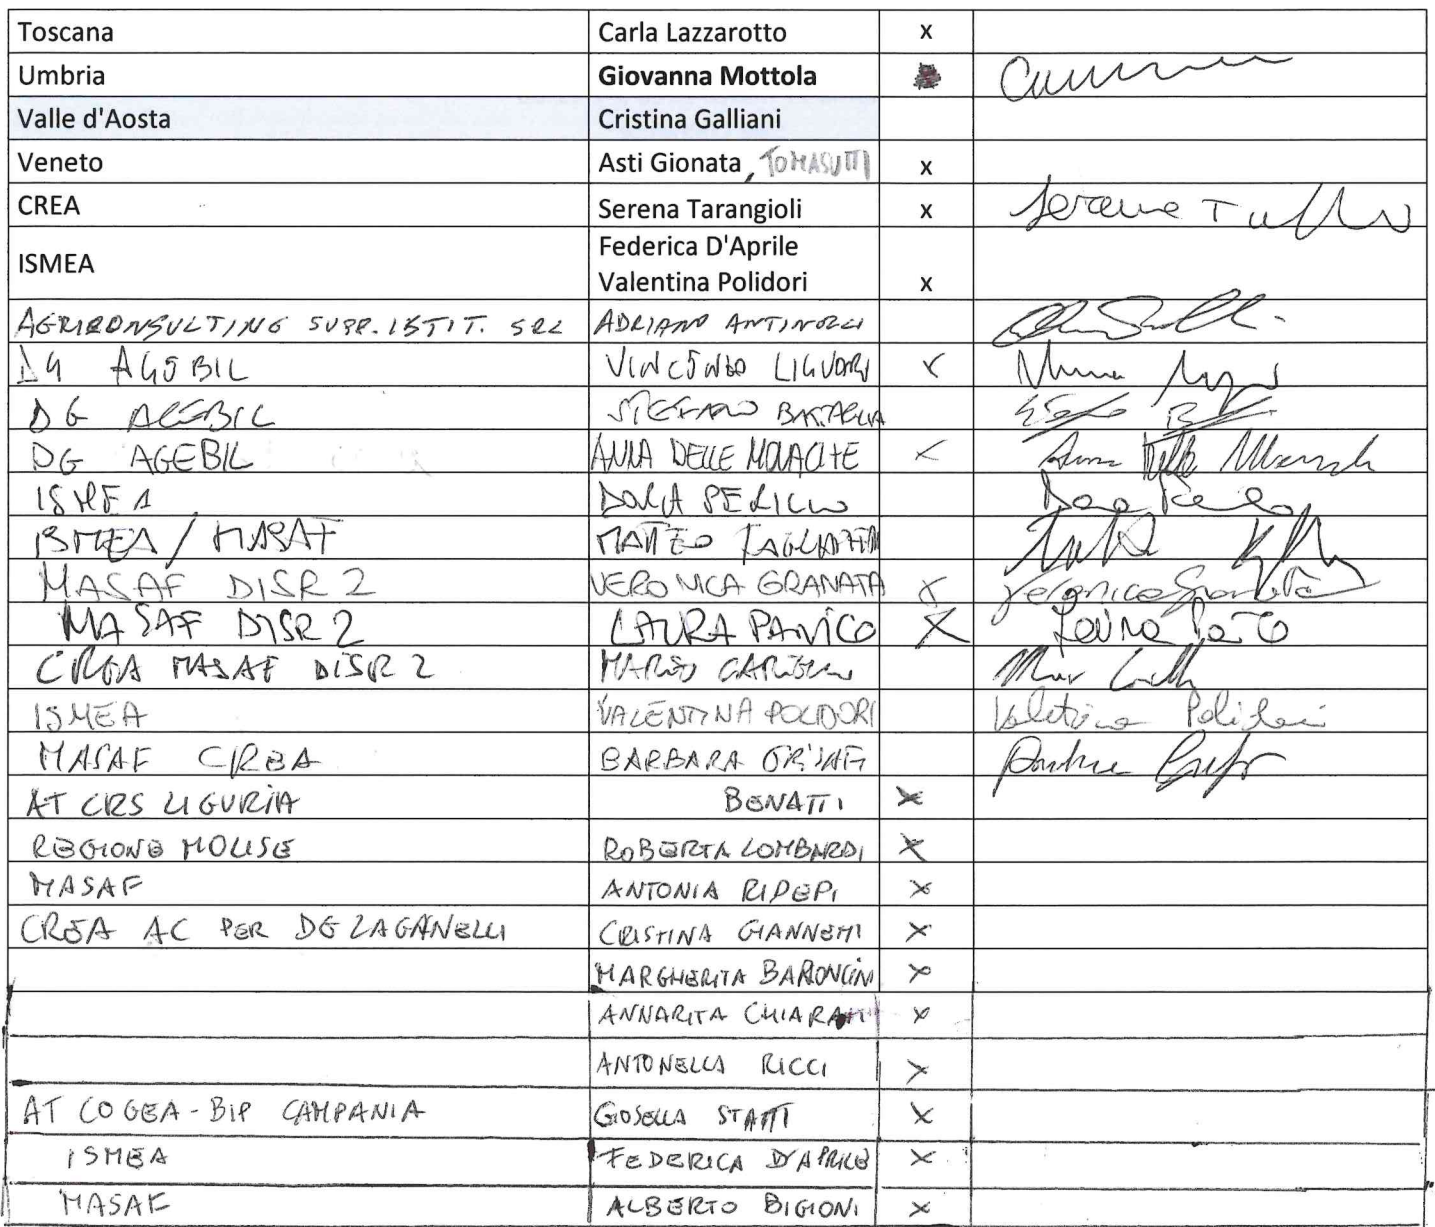 Toscana Carla Lazzarotto x
Umbria Giovanna Mottola
Valle d'Aosta Cristina Galliani
Veneto Asti Gionata, TOMASUTTI x
CREA Serena Tarangioli x
Federica D'Aprile
ISMEA Valentina Polidori x
AGRICONSULTING SUPP. ISTIT. SRL ADRIANO
DG AGEBIL VINCENZO LIGUORI x
DG AGEBIL STEFANO BATTAGLIA
DG AGEBIL ANNA DELLE MONACHE x Anna Delle Monache
ISMEA DORA PERILLO
ISMEA / MASAF MATTEO
MASAF DISR 2 VERONICA GRANATA x Veronica Granata
MASAF DISR 2 LAURA PANICO X Laura
CREA MASAF DISR 2 MARIO
ISMEA VALENTINA POLIDORI Valentina Polidori
MASAF CREA BARBARA
AT CRS LIGURIA BENATTI x
REGIONE MOLISE ROBERTA LOMBARDI x
MASAF ANTONIA RIPEPI x
CREA AC PER DG LAGANELLI CRISTINA GIANNEMI x
MARGHERITA BARONCINI x
ANNARITA x
ANTONELLA RICCI x
AT COGEA-BIP CAMPANIA GIOSELLA x
ISMEA FEDERICA D'APRILE x
MASAF ALBERTO BIGIONI x